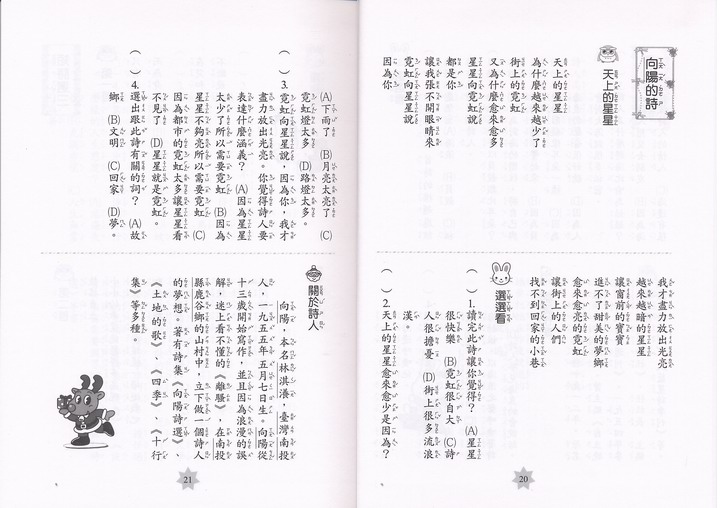 向陽的詩
天上的星星
天上的星星
為什麼越來越少了
街上的霓虹
又為什麼愈來愈多
星星向霓虹說
都是你
讓我張不開眼睛來
霓虹向星星說
因為你
我才盡力放出光亮
越來越暗的星星
讓窗前的寶寶
進不了甜美的夢鄉
愈來愈亮的霓虹
讓街上的人們
找不到回家的小巷
選選看
( ) 1. 讀完此詩讓你覺得？ (A) 星星
很快樂 (B) 霓虹很自大 (C) 詩
人很擔憂 (D) 街上很多流浪
漢。
( ) 2. 天上的星星愈來愈少是因為？
20
(A) 下雨了 (B) 月亮太亮了 (C)
霓虹燈太多 (D) 路燈太多。
( ) 3. 霓虹向星星說，因為你，我才
盡力放出光亮。你覺得詩人要
表達什麼涵義？ (A) 因為星星
太少了所以需要霓虹 (B) 因為
星星不夠亮所以需要霓虹 (C)
因為都市的霓虹太多讓星星看
不見了 (D) 星星就是霓虹。
( ) 4. 選出跟此詩有關的詞？ (A) 故
鄉 (B) 文明 (C) 回家 (D) 夢。
關於詩人
向陽，本名林淇瀁，臺灣南投
人，一九五五年五月七日生。向陽從
十三歲開始寫作，並且因為浪漫的誤
解，迷上看不懂的《離騷》，在南投
縣鹿谷鄉的山村中，立下做一個詩人
的夢想。著有詩集《向陽詩選》、
《土地的歌》、《四季》、《十行
集》等多種。
21